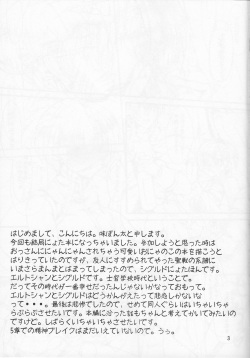 はじめまして、こんにちは。味ぽん太と申します。
今回も結局にょた本になっちゃいました。参加しようと思った時は
おっさんににゃんにゃんされちゃう可愛いおにゃのこの本を描こうと
はりきっていたのですが、友人にすすめられてやった聖戦の系譜に
いまさらまんまとはまってしまったので、シグルドにょたほんです。
エルトシャンとシグルドです。士官学校時代ということで。
だってその時代が一番幸せだったんじゃないかなっておもって。
エルトシャンとシグルドはどうかんがえたって悲恋しかないな
って・・・。最後は悲惨でしたので、せめて同人ぐらいはいちゃいちゃ
らぶらぶさせたいです。本編に沿ったはなしもちゃんと考えてかいてみたいの
ですけど。しばらくいちゃいちゃさせたいです。
5章での精神ブレイクはまだいえていないので。うぅ。
3